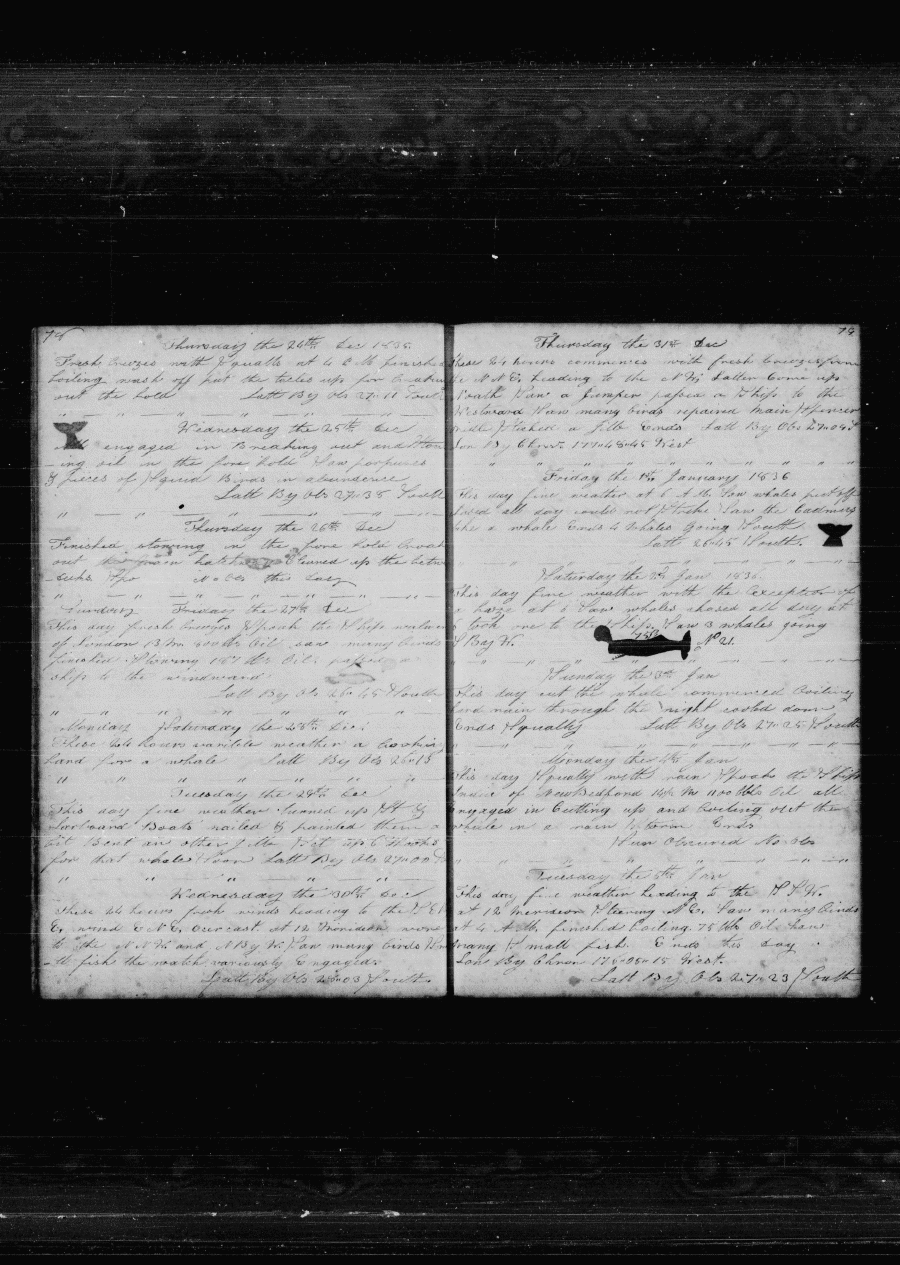 Thursday the 24th Dec 1835
Fresh breezes with Squalls at 4 P M finished
boiling wash off put the tacles up for breaking
out the hold Latt By Obs 27-11 South
Wednesday the 25th Dec
engaged in Breaking out and Stow
-ing oil in the fore hold Saw porpoises
& pieces of Squid Birds in abundance
Latt By Obs 27-38 South
Thursday the 26th Dec
Finished stowing in the fore hold broak
out the main hatch Cleaned up the betw
-decks No Obs this day
Sunday Friday the 27th Dec
This day fresh breezes Spoak the Ship
of London 13 Mo Oil saw many birds
finished Stowing Oil
ship to the windward
Latt By Obs 26-45 South
Monday Saturday the 28th Dec
These 24 hours varible weather a looking
hard for a whale Latt By Obs 26-13
Tuesday the 29th Dec
This day fine weather turned up &
Larboard Boats nailed & painted them a
bit Bent an other Jib Bet up 6 Marks
for that whale Soon Latt By Obs 27-00
Wednesday the 30th Dec
These 24 hours fresh winds heading to the S E
E. wind E N E Overcast at 12 Meridean wore
to the N N W and N By W Saw many birds
fish the watch variously Engaged
Latt By Obs 28-03 South
79
Thursday the 31st Dec
These 24 hours commences with fresh breezes from
the N N E heading to the N W Latter Come up
North Saw a Jumper passed a Ship to the
Westward Saw many birds repaired main Spencer
Jib Ends Latt By Obs 27-04 S
Lon By Chron 177-48-45 West
Friday the 1st January 1836
This day fine weather at 6 A M Saw whales
chased all day could not Strike Saw the Cadmus
take a whale Ends 4 whales going South
Latt 26-45 South.
Saturday the 2d Jan 1836
This day fine weather with the exception of
a haze at 6 Saw whales chased all day at
6 took one to the ship Saw 3 whales going
S By W. No 21.
Sunday the 3rd Jan
This day cut the whale commenced Boiling
hard rain through the night cooled down
Ends Squally Latt By Obs 27-25 South
Monday the 4th Jan
This day Squally with rain Spoak the Ship
of New Bedford 14 Mo 1100 bbls Oil all
engaged in Cutting up and boiling out the
whale in a rain Storm Ends
Sun Obscured No Obs
Tuesday the 5th Jan
This day fine weather heading to the S S W.
at 12 Meridean Steering N E. Saw many birds
at 4 A M. finished boiling 75 bbls Oil Saw
many Small fish Ends this day
Lon By Chron 175-05-15 West.
Latt By Obs 27-23 South